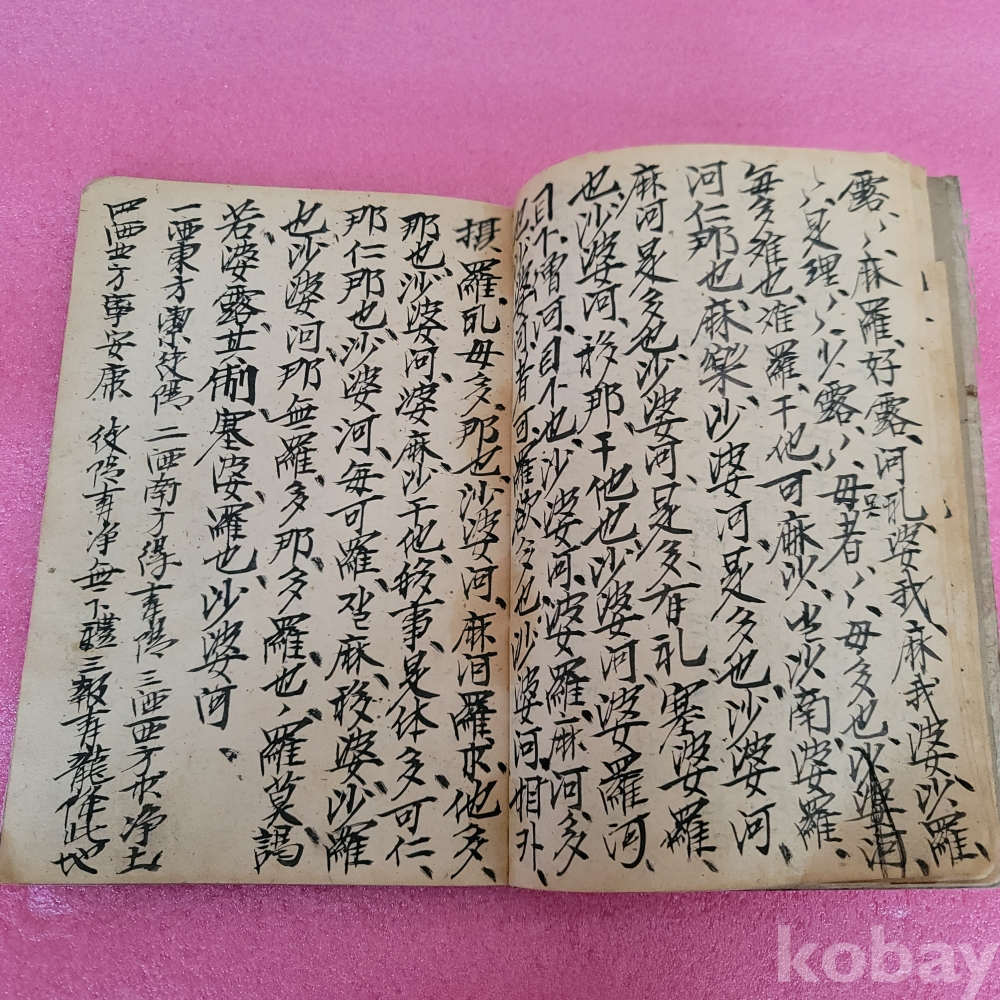 露〻麻羅、好露、河乱婆我、麻我婆沙羅、
〻〻是理〻〻少露〻〻毋者〻〻毋多也、沙婆河、
吳
毎多难也、难羅、干他、可麻沙、出沙南婆羅、
河仁那也、麻樂沙婆河、是多也、沙婆河
麻河是多也、沙婆河、是多、有乱、塞婆羅、
也、沙婆河、移那、干他也、沙婆河、婆羅河、
目不、曾河、目不也、沙婆河、婆羅、麻河、多
也、沙婆河、者河羅欲多也、沙婆河、相카、
摂羅、乱毋多、那也、沙婆河、麻河羅、木他多、
那也、沙婆河、婆麻、沙干他、移事、是体多、可仁、
那仁那也、沙婆河、毎可羅、잘麻、移婆、沙羅
也、沙婆河、那無羅、多那、多羅也、羅莫謁、
若婆露丑、制塞婆、羅也、沙婆河、
一洒東方潔 二洒南方得 三洒西方求净土
四洒北方 安康 净無下禮 三報 龍降此地